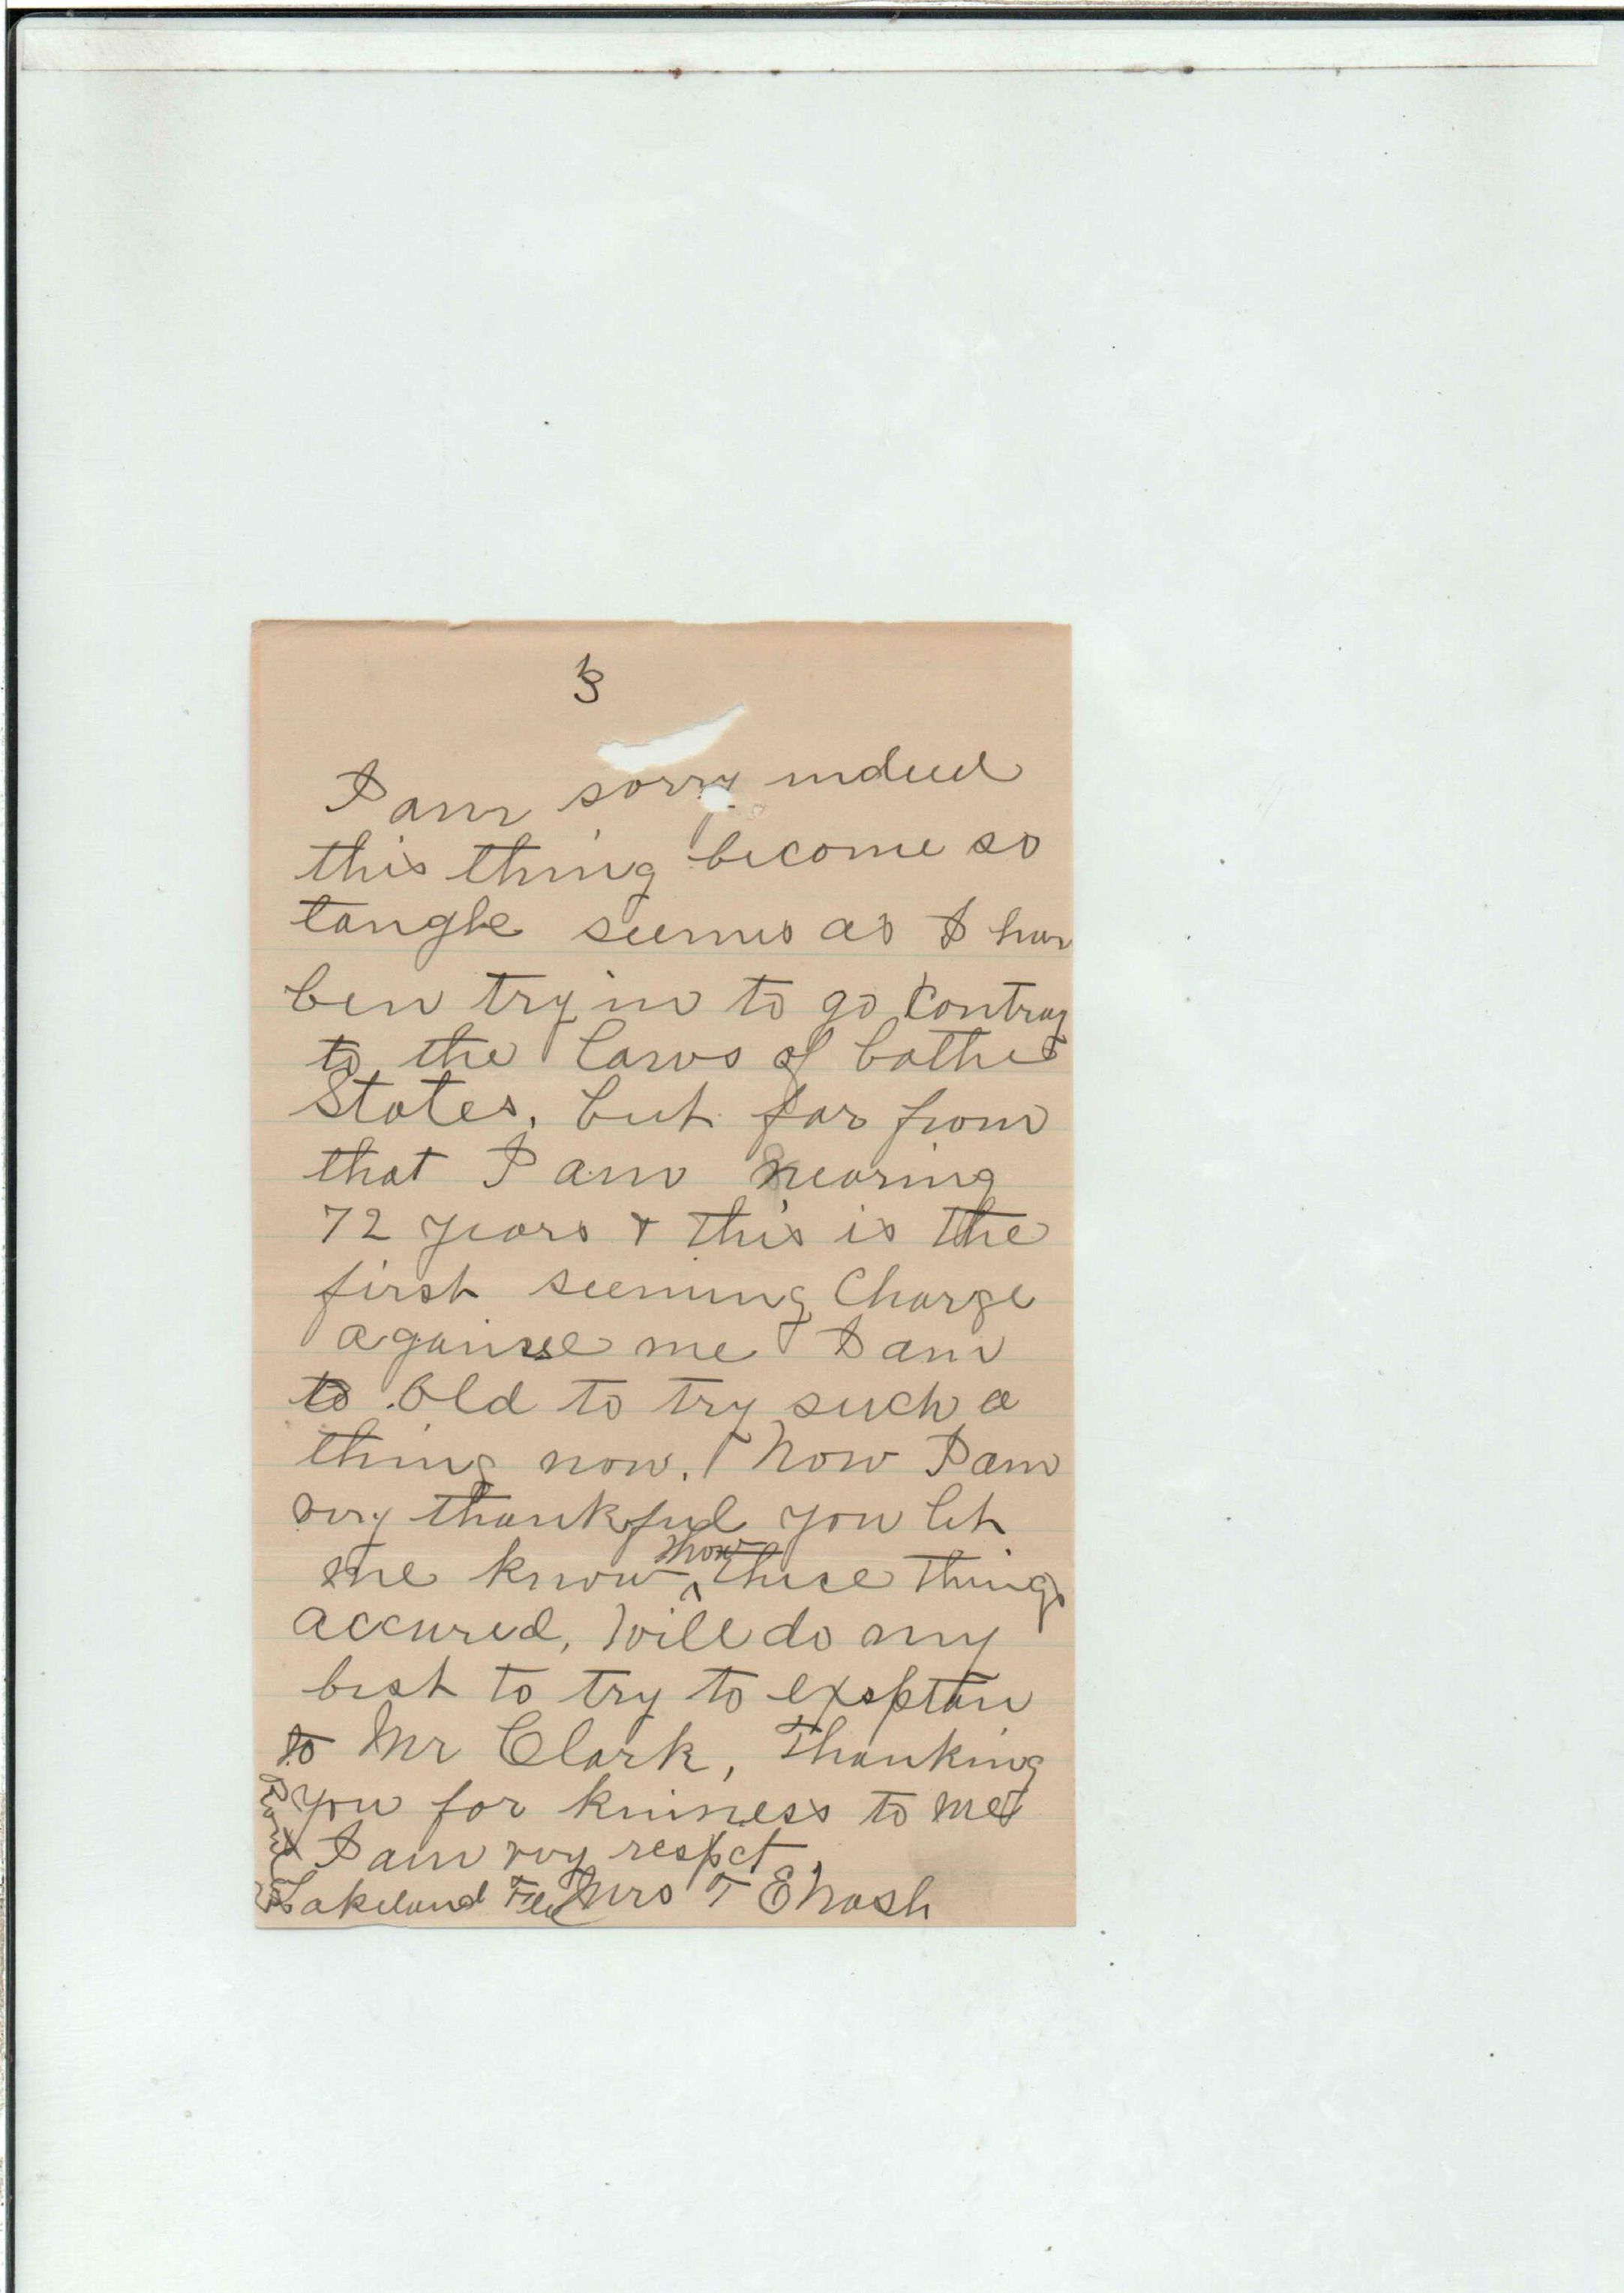 3
I am sorry indeed
this thing become so
tangle seems as I hav
ben tryin to go Contray
to the laws of bothe
States. but far from
that I am nearing
72 years + this is the
first seeming Charge
against me I am
to Old to try such a
thing now. Now I am
very thankful you let
me know how these things
accured, Will do my
best to try to
to Mr Clark, Thanking
you for kinness to me
I am very respct
Lakeland Fla Mrs T E Nash